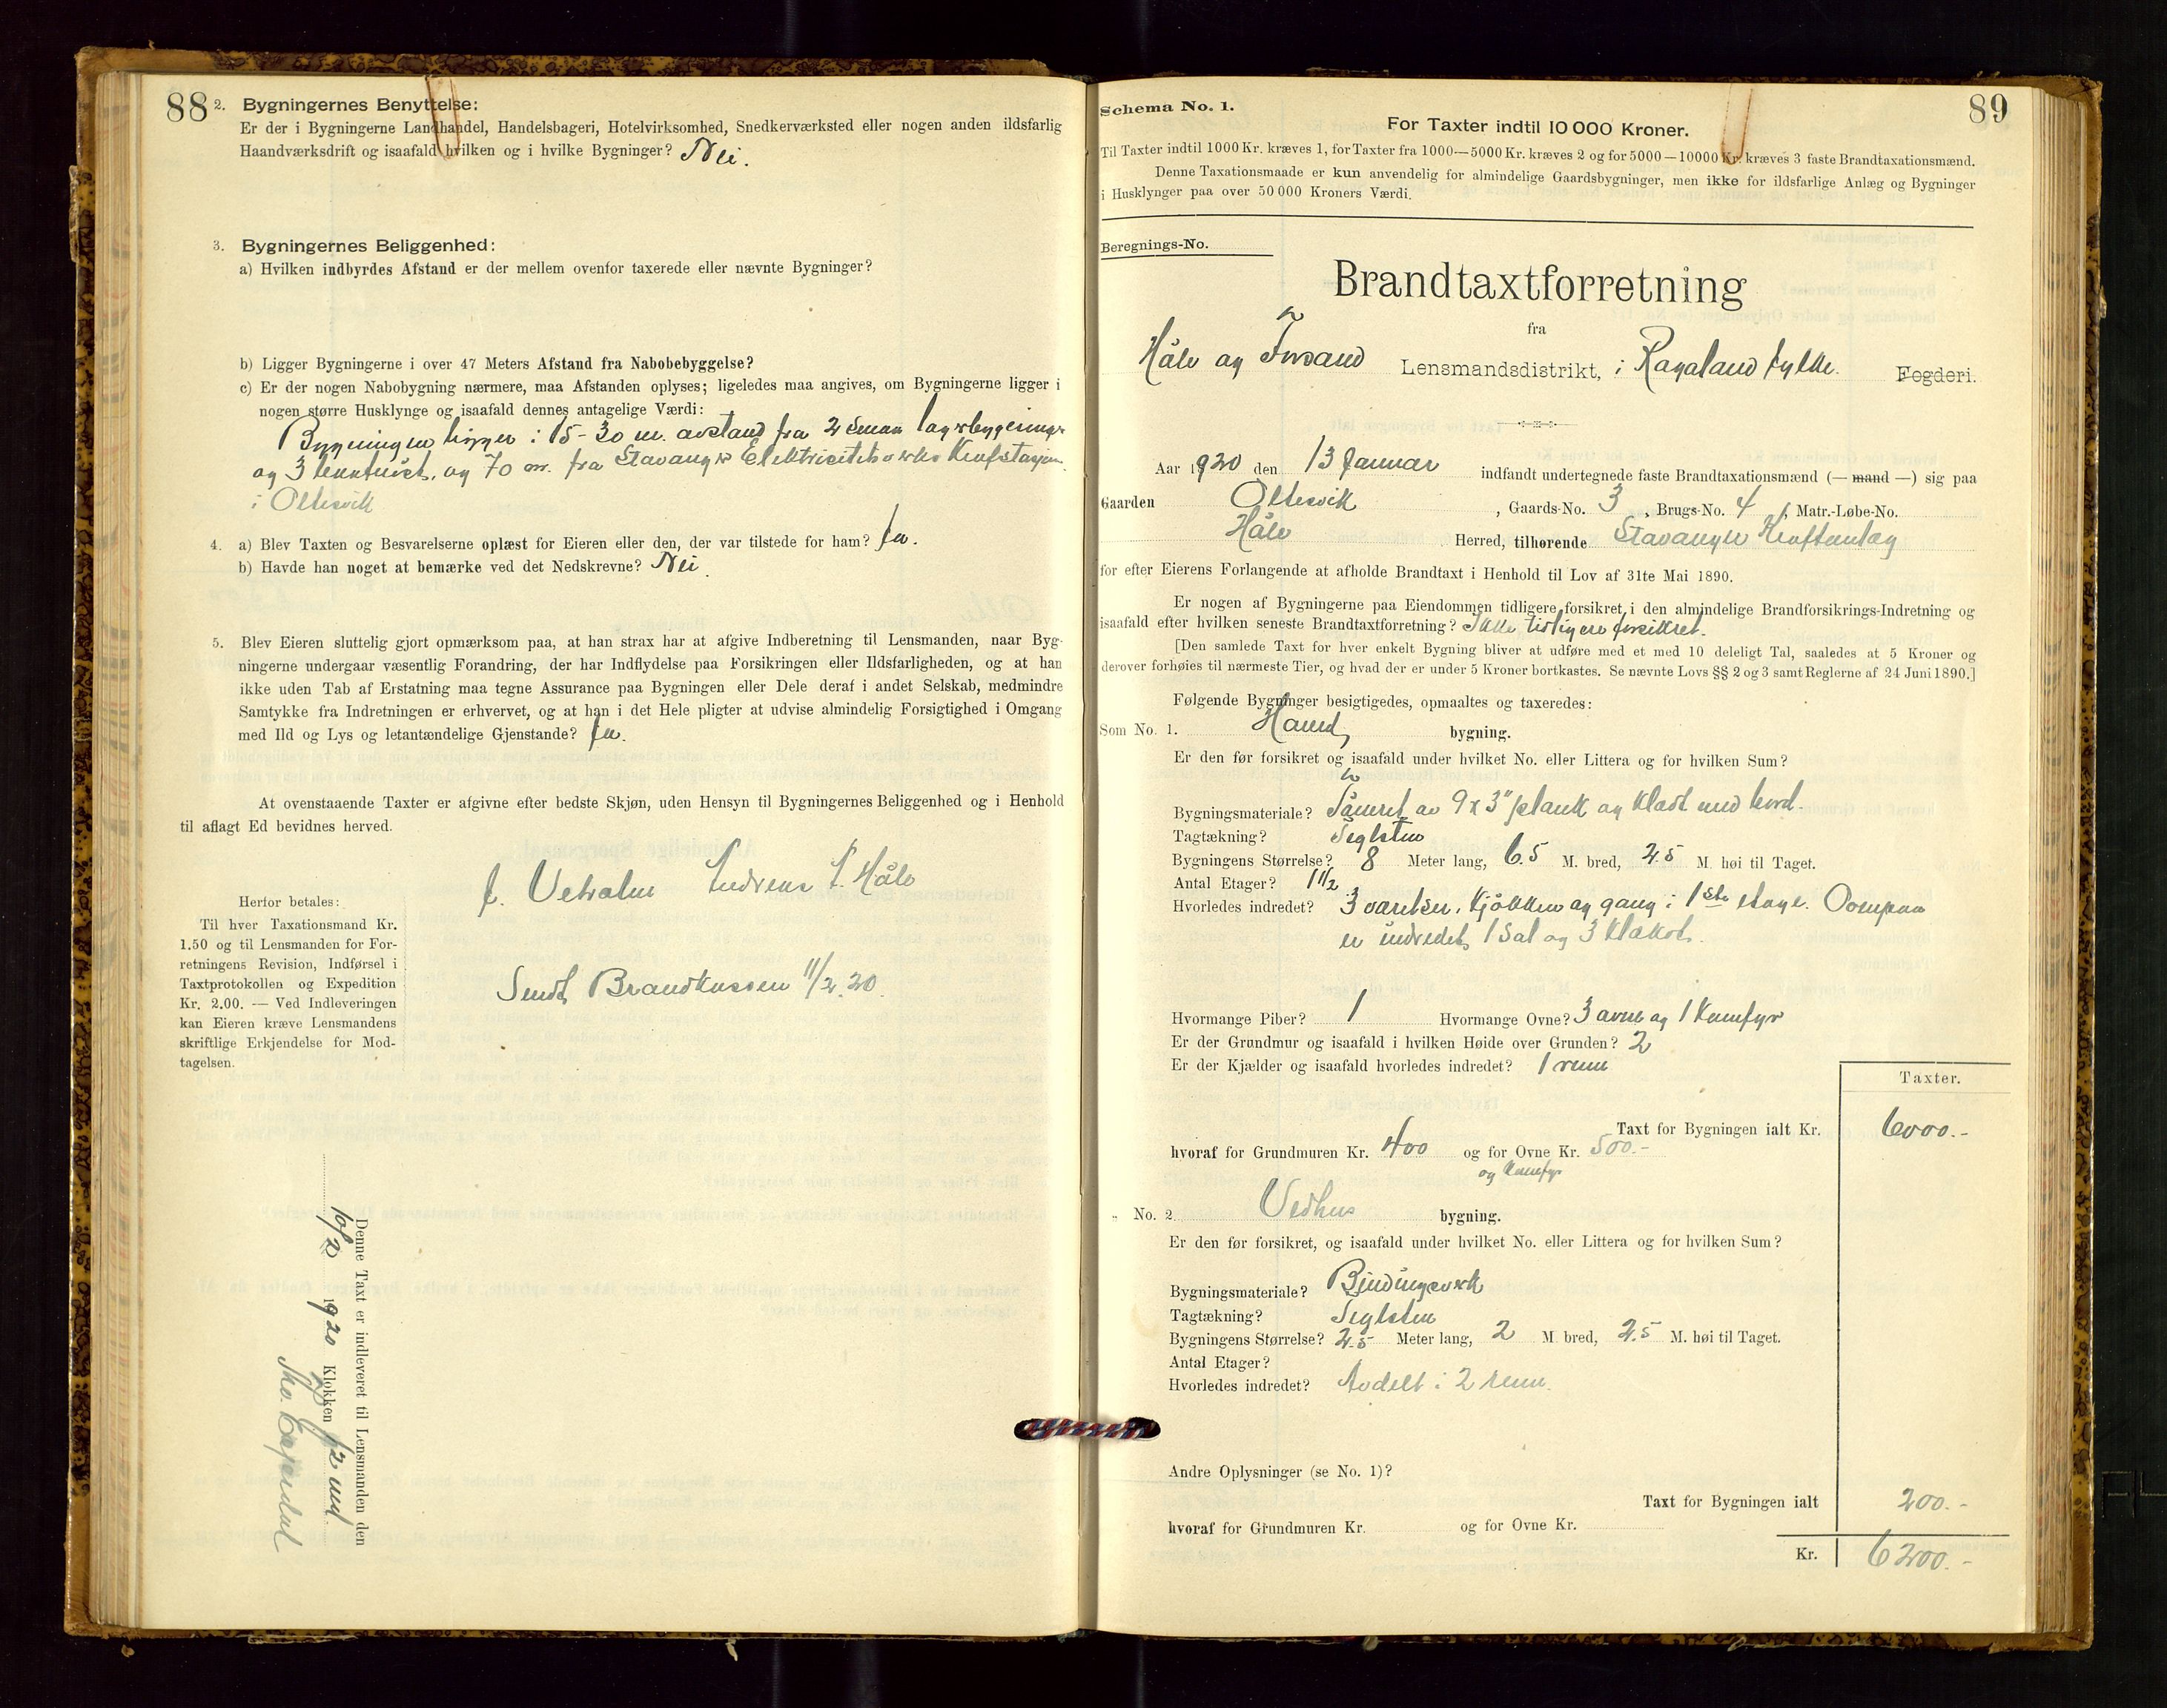 88
2. Bygningernes Benyttelse:
Er der i Bygningerne Landhandel, Handelsbageri, Hotelvirksomhed, Snedkerværksted eller nogen anden ildsfarlig
Haandværksdrift og isaafald hvilken og i hvilke Bygninger? Nei.
3. Bygningernes Beliggenhed:
a) Hvilken indbyrdes Afstand er der mellem ovenfor taxerede eller nævnte Bygninger?
b) Ligger Bygningerne i over 47 Meters Afstand fra Nabobebyggelse?
c) Er der nogen Nabobygning nærmere, maa Afstanden oplyses; ligeledes maa angives, om Bygningerne ligger i
nogen større Husklynge og isaafald dennes antagelige Værdi:
Bygningen ligger i 15-30 m. avstand fra 2 smaa
og 3 og 70 m. fra Stavanger Elektricitetsverks Kraftstasjon
i Oltesvik
4. a) Blev Taxten og Besvarelserne oplæst for Eieren eller den, der var tilstede for ham? Ja.
b) Havde han noget at bemærke ved det Nedskrevne? Nei
5. Blev Eieren sluttelig gjort opmærksom paa, at han strax har at afgive Indberetning til Lensmanden, naar Byg-
ningerne undergaar væsentlig Forandring, der har Indflydelse paa Forsikringen eller Ildsfarligheden, og at han
ikke uden Tab af Erstatning maa tegne Assurance paa Bygningen eller Dele deraf i andet Selskab, medmindre
Samtykke fra Indretningen er erhvervet, og at han i det Hele pligter at udvise almindelig Forsigtighed i Omgang
med Ild og Lys og letantændelige Gjenstande? Ja.
At ovenstaaende Taxter er afgivne efter bedste Skjøn, uden Hensyn til Bygningernes Beliggenhed og i Henhold
til aflagt Ed bevidnes herved.
Håle
Sendt Brandkassen 11/2. 20.
Herfor betales:
Til hver Taxationsmand Kr.
1.50 og til Lensmanden for For-
retningens Revision, Indførsel i
Taxtprotokollen og Expedition
Kr. 2.00. — Ved Indleveringen
kan Eieren kræve Lensmandens
skriftlige Erkjendelse for Mod-
tagelsen.
Denne Taxt er indleveret til Lensmanden den
10/2 1920 Klokken 12 md.
89
Schema No. 1.
For Taxter indtil 10 000 Kroner.
Til Taxter indtil 1000 Kr. kræves 1, for Taxter fra 1000—5000 Kr. kræves 2 og for 5000—10000 Kr. kræves 3 faste Brandtaxationsmænd.
Denne Taxationsmaade er kun anvendelig for almindelige Gaardsbygninger, men ikke for ildsfarlige Anlæg og Bygninger
i Husklynger paa over 50 000 Kroners Værdi.
Beregnings-No.
Brandtaxtforretning
fra
Håle og Forsand Lensmandsdistrikt, i Rogaland fylke. Fogderi.
Aar 1920 den 13 Januar indfandt undertegnede faste Brandtaxationsmænd (— mand —) sig paa
Gaarden Oltesvik, Gaards-No. 3, Brugs-No. 4, Matr.-Løbe-No.
Håle Herred, tilhørende Stavanger Kraftanlæg
for efter Eierens Forlangende at afholde Brandtaxt i Henhold til Lov af 31te Mai 1890.
Er nogen af Bygningerne paa Eiendommen tidligere forsikret i den almindelige Brandforsikrings-Indretning og
isaafald efter hvilken seneste Brandtaxtforretning? Ikke tidligere forsikret.
[Den samlede Taxt for hver enkelt Bygning bliver at udføre med et med 10 deleligt Tal, saaledes at 5 Kroner og
derover forhøies til nærmeste Tier, og hvad der er under 5 Kroner bortkastes. Se nævnte Lovs §§ 2 og 3 samt Reglerne af 24 Juni 1890.]
Følgende Bygninger besigtigedes, opmaaltes og taxeredes:
Som No. 1. bygning.
Er den før forsikret og isaafald under hvilket No. eller Littera og for hvilken Sum?
Bygningsmateriale? av 9 x 3" plank og klædt med bord.
Tagtækning? Teglsten
Bygningens Størrelse? 8 Meter lang, 6.5 M. bred, 2.5 M. høi til Taget.
Antal Etager? 1 1/2
Hvorledes indredet? 3 værelser, kjøkken og gang i 1ste etage. Ovenpaa
er indredet 1 sal og 3
Hvormange Piber? 1 Hvormange Ovne? 3 ovne og 1 komfyr
Er der Grundmur og isaafald i hvilken Høide over Grunden? 2
Er der Kjælder og isaafald hvorledes indredet? 1 rum
Taxter.
Taxt for Bygningen ialt Kr. 6000.-
hvoraf for Grundmuren Kr. 400 og for Ovne Kr. 500.-
og komfyr
„ No. 2 Vedhus bygning.
Er den før forsikret, og isaafald under hvilket No. eller Littera og for hvilken Sum?
Bygningsmateriale? Bindingsverk
Tagtækning? Teglsten
Bygningens Størrelse? 2.5 Meter lang, 2 M. bred, 2.5 M. høi til Taget.
Antal Etager?
Hvorledes indredet? Avdelt i 2 rum.
Andre Oplysninger (se No. 1)?
Taxt for Bygningen ialt 200.-
hvoraf for Grundmuren Kr. og for Ovne Kr.
Kr. 6200.-